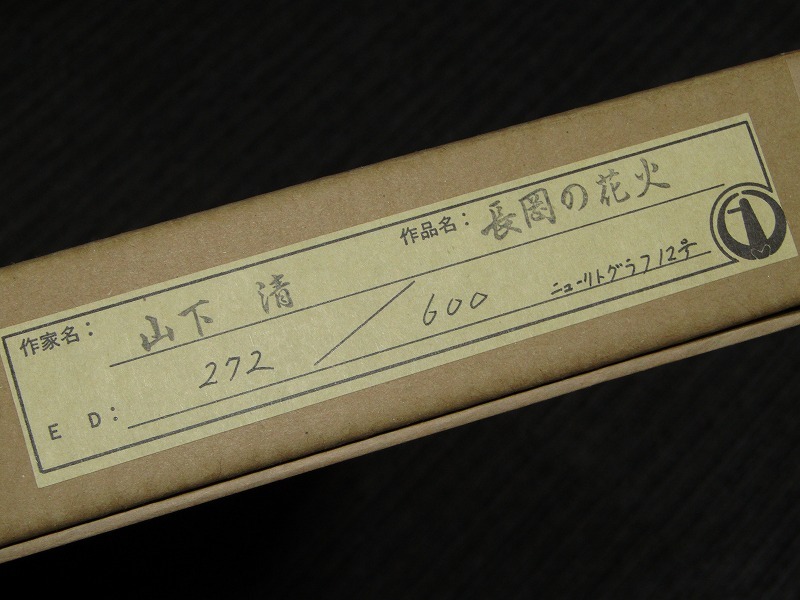 作家名: 山下 清 作品名: 長岡の花火
ED: 272/600 ニューリトグラフ12号